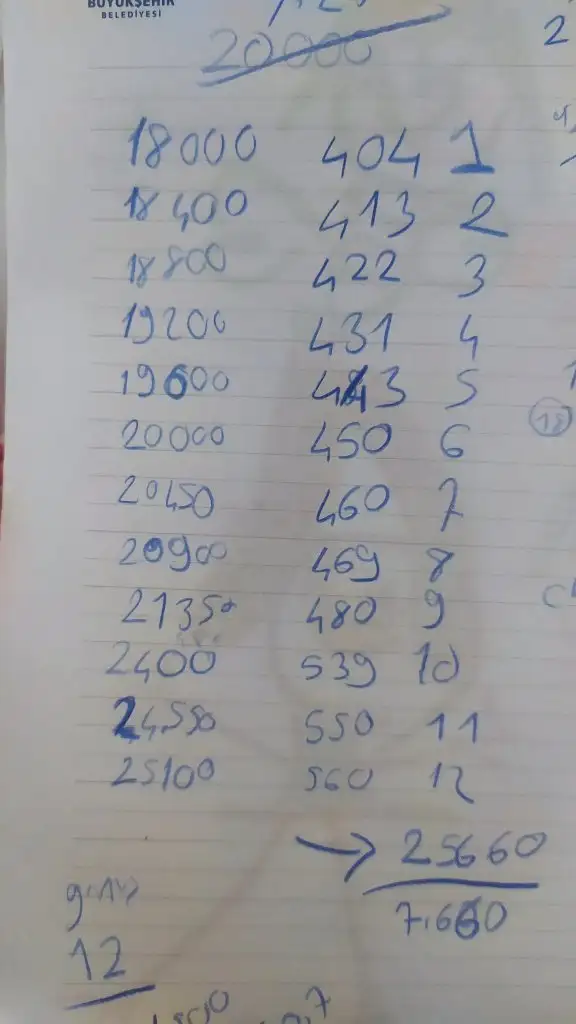 BÜYÜKŞEHİR
BELEDİYESİ
20000
2
18000 404 1
18400 413 2
18800 422 3
19200 431 4
19600 443 5
20000 450 6
20450 460 7
20900 469 8
21350 480 9
2400 539 10
24.550 550 11
25100 560 12
→ 25660
7.660
12